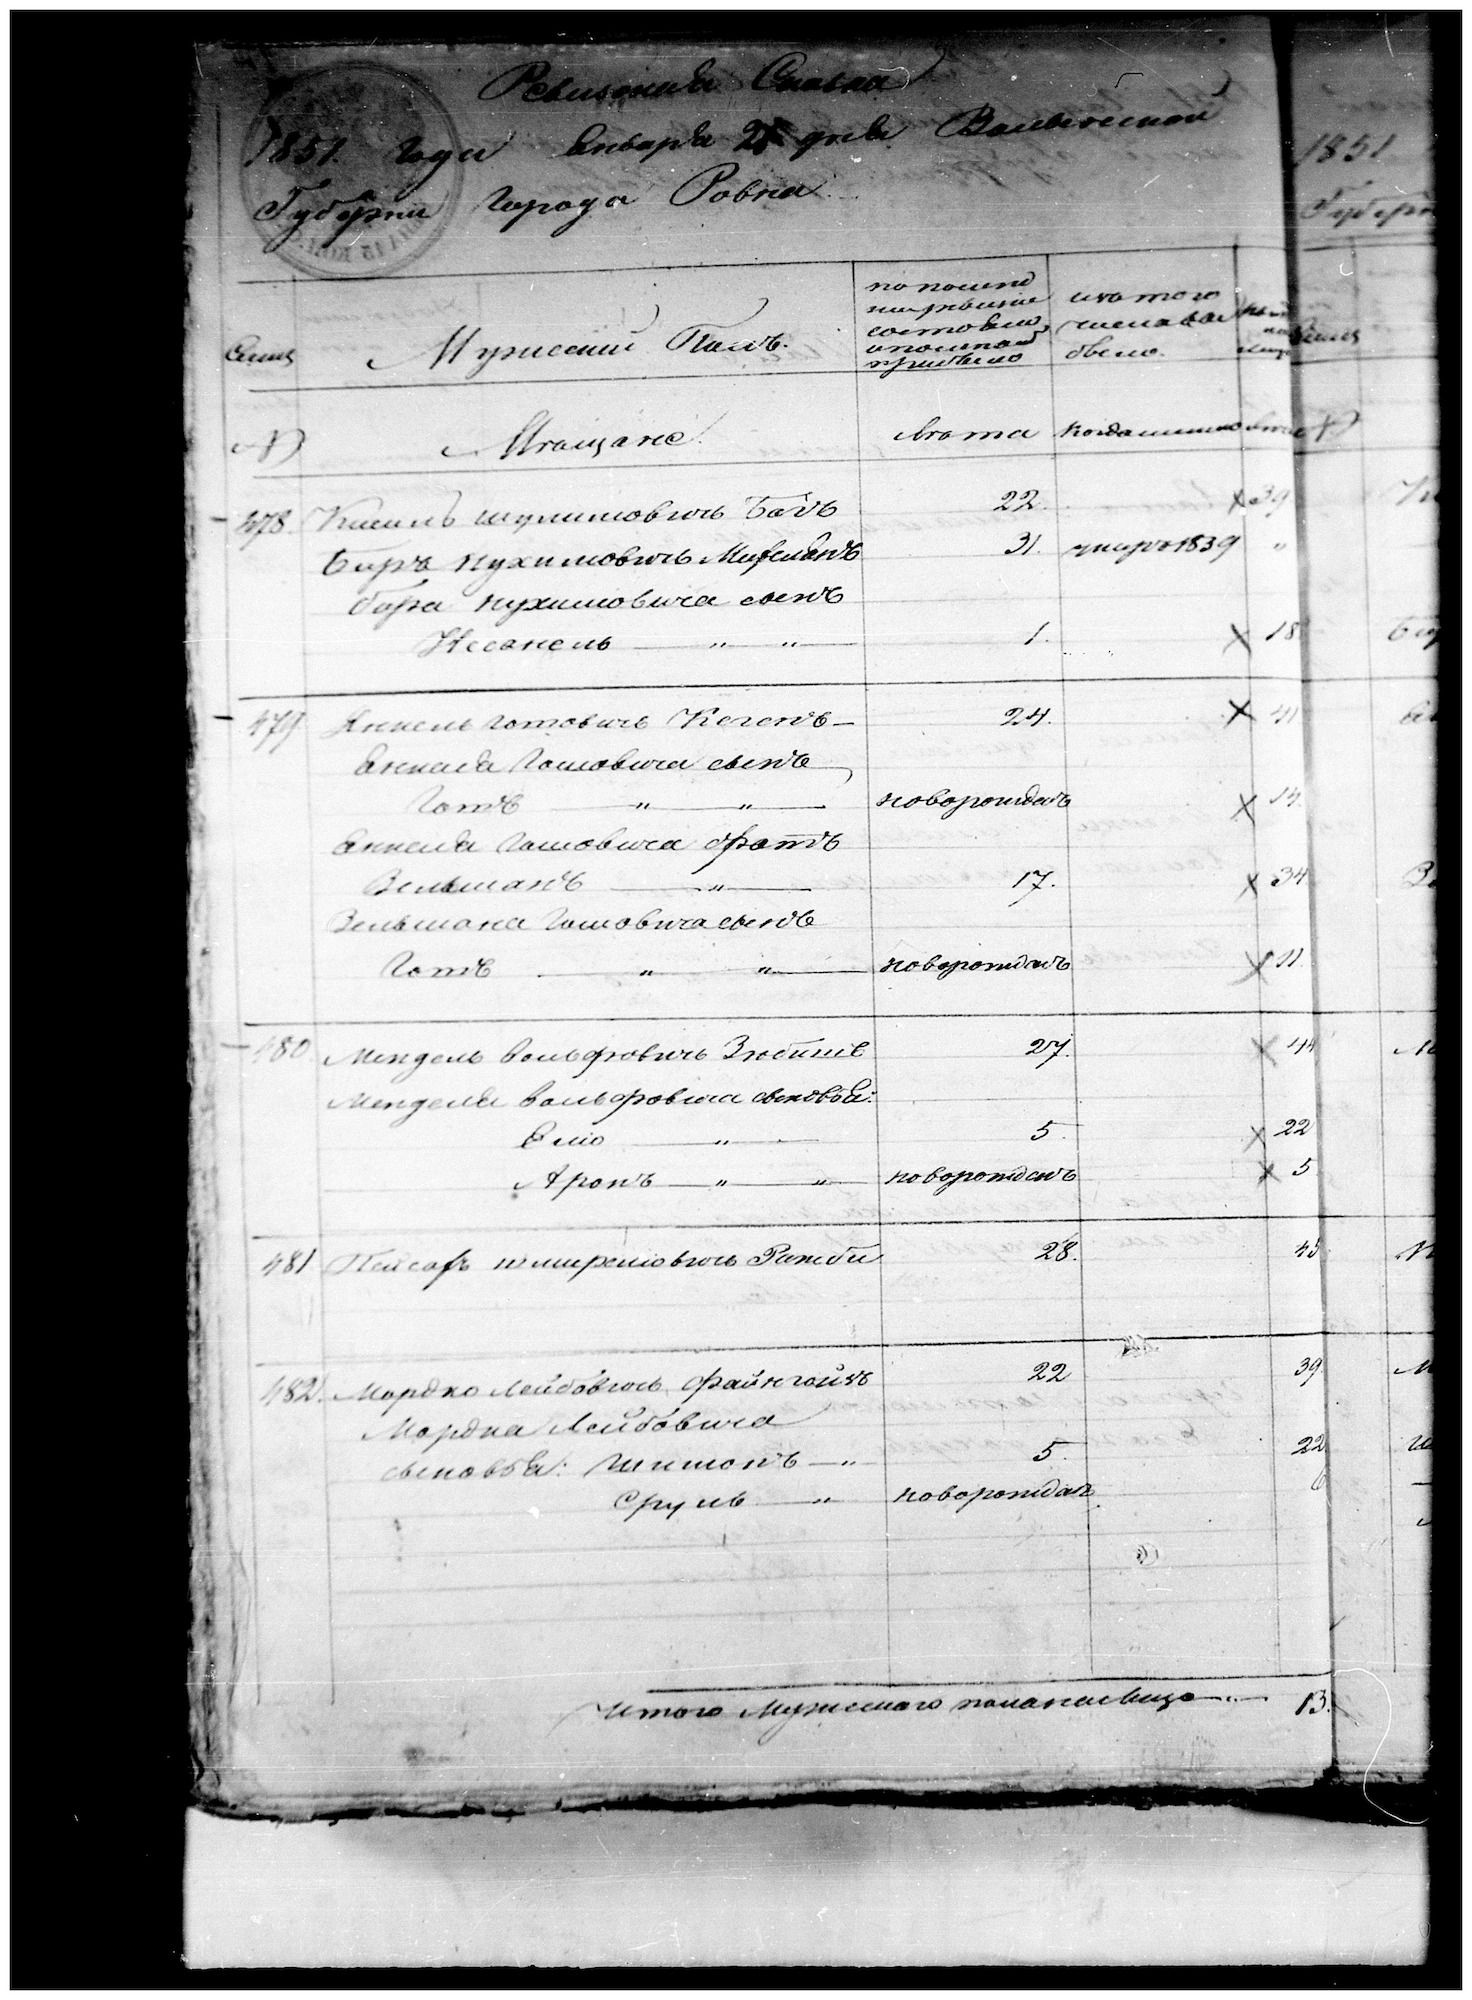 Ревизская Сказка
1851. Года Января 2 дня Волынской
Губернии Города Ровна
Семьи
Мужеский Полъ.
по последней ревизіи состояло и после того прибыло
изъ того числа выбыло.
1851
Губерн
№
Мещане
Лета
Когда именно
№
478. Кисиль Шулимовичь Бадъ 22. 39
Беръ Нухимовичь 31. умеръ 1839 "
Бера Нухимовича сынъ
Несанель " " 1. 18
479 Янкель Готовичь Кегенъ 24. 41
Янкеля Готовича сынъ
Готъ " " новорожденъ 14.
Янкеля Готовича братъ
Зельманъ " 17. 34
Зельмана Готовича сынъ
Готъ " " новорожденъ 11.
480. Мендель Вольфовичь 27. 44
Менделя Вольфовича сыновья:
Елio " 5. 22
Аронъ " " новорожденъ 5
481 Пейсахъ 28. 45
482. Мордко Лейбовичь Файнгойзъ 22 39
Мордка Лейбовича
сыновья: Шимонъ " 5. 22
Сруль " новорожден 6
Итого Мужескаго пола на лицо 13.